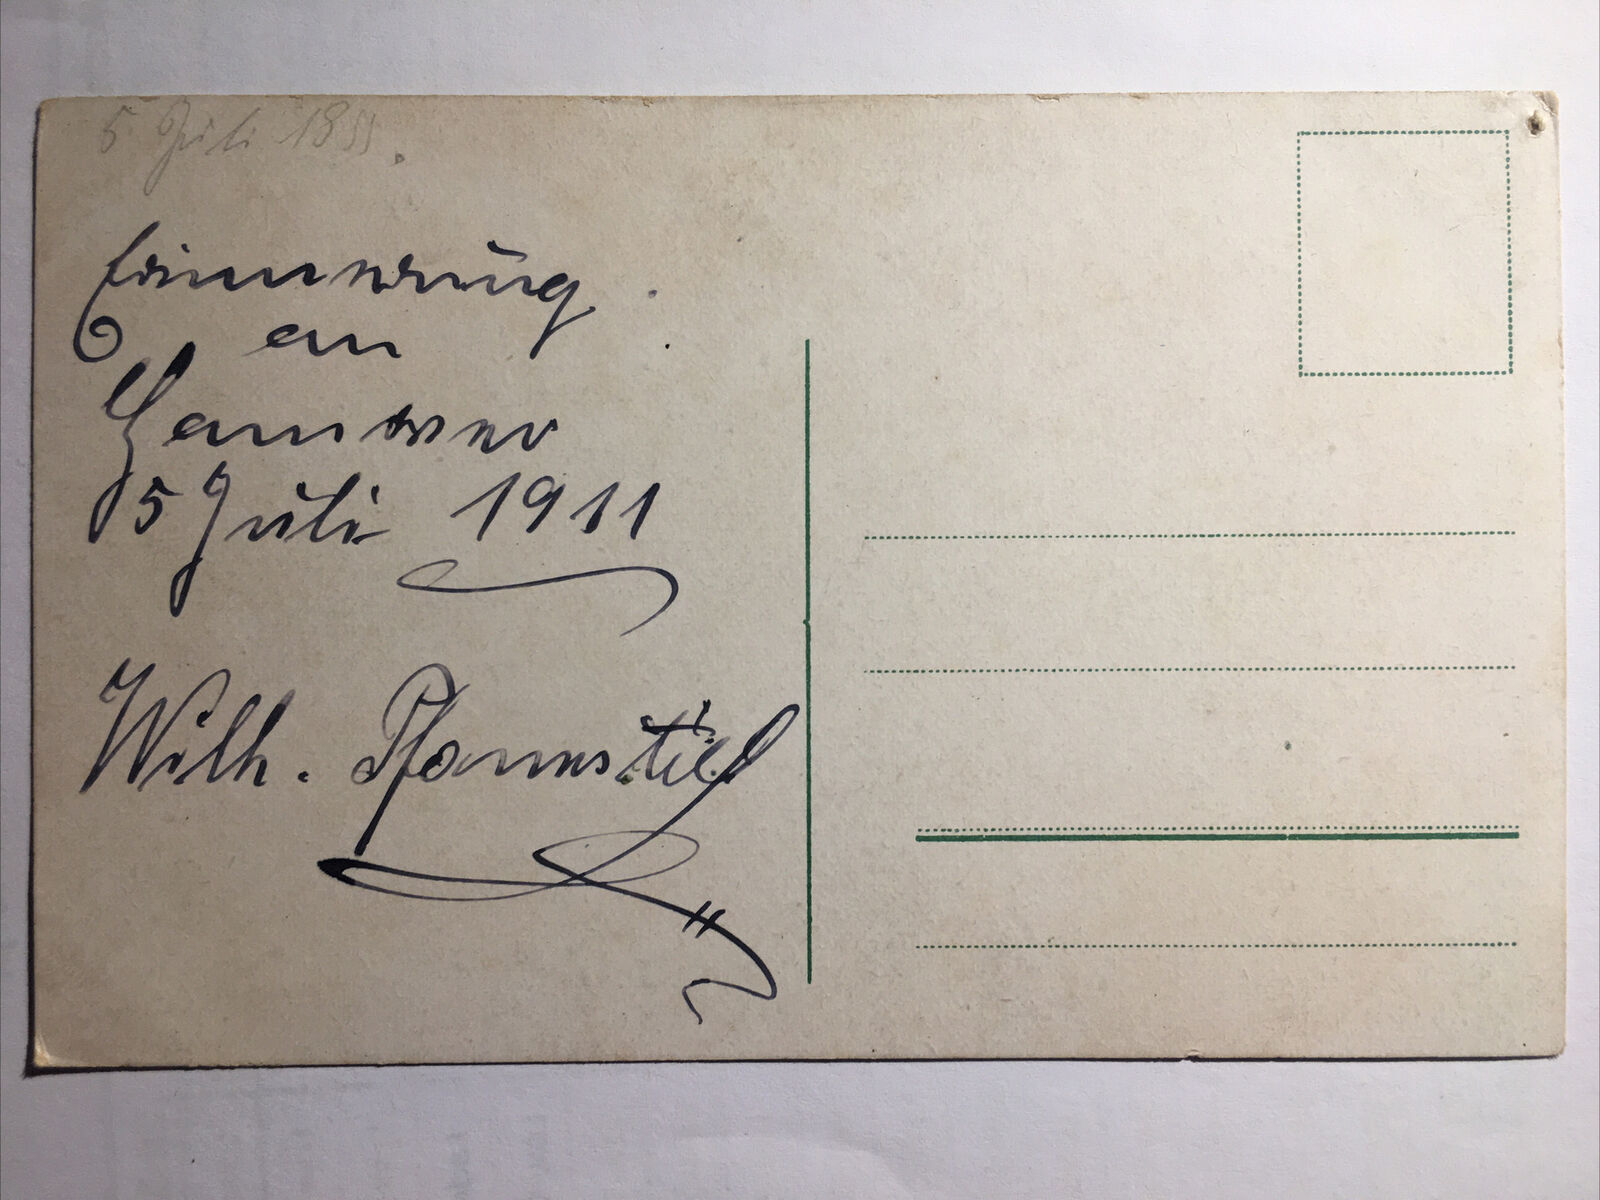 5 Juli 1811.
Erinnerung
an
Hannover
5 Juli 1911
Wilh. Pfannstiel